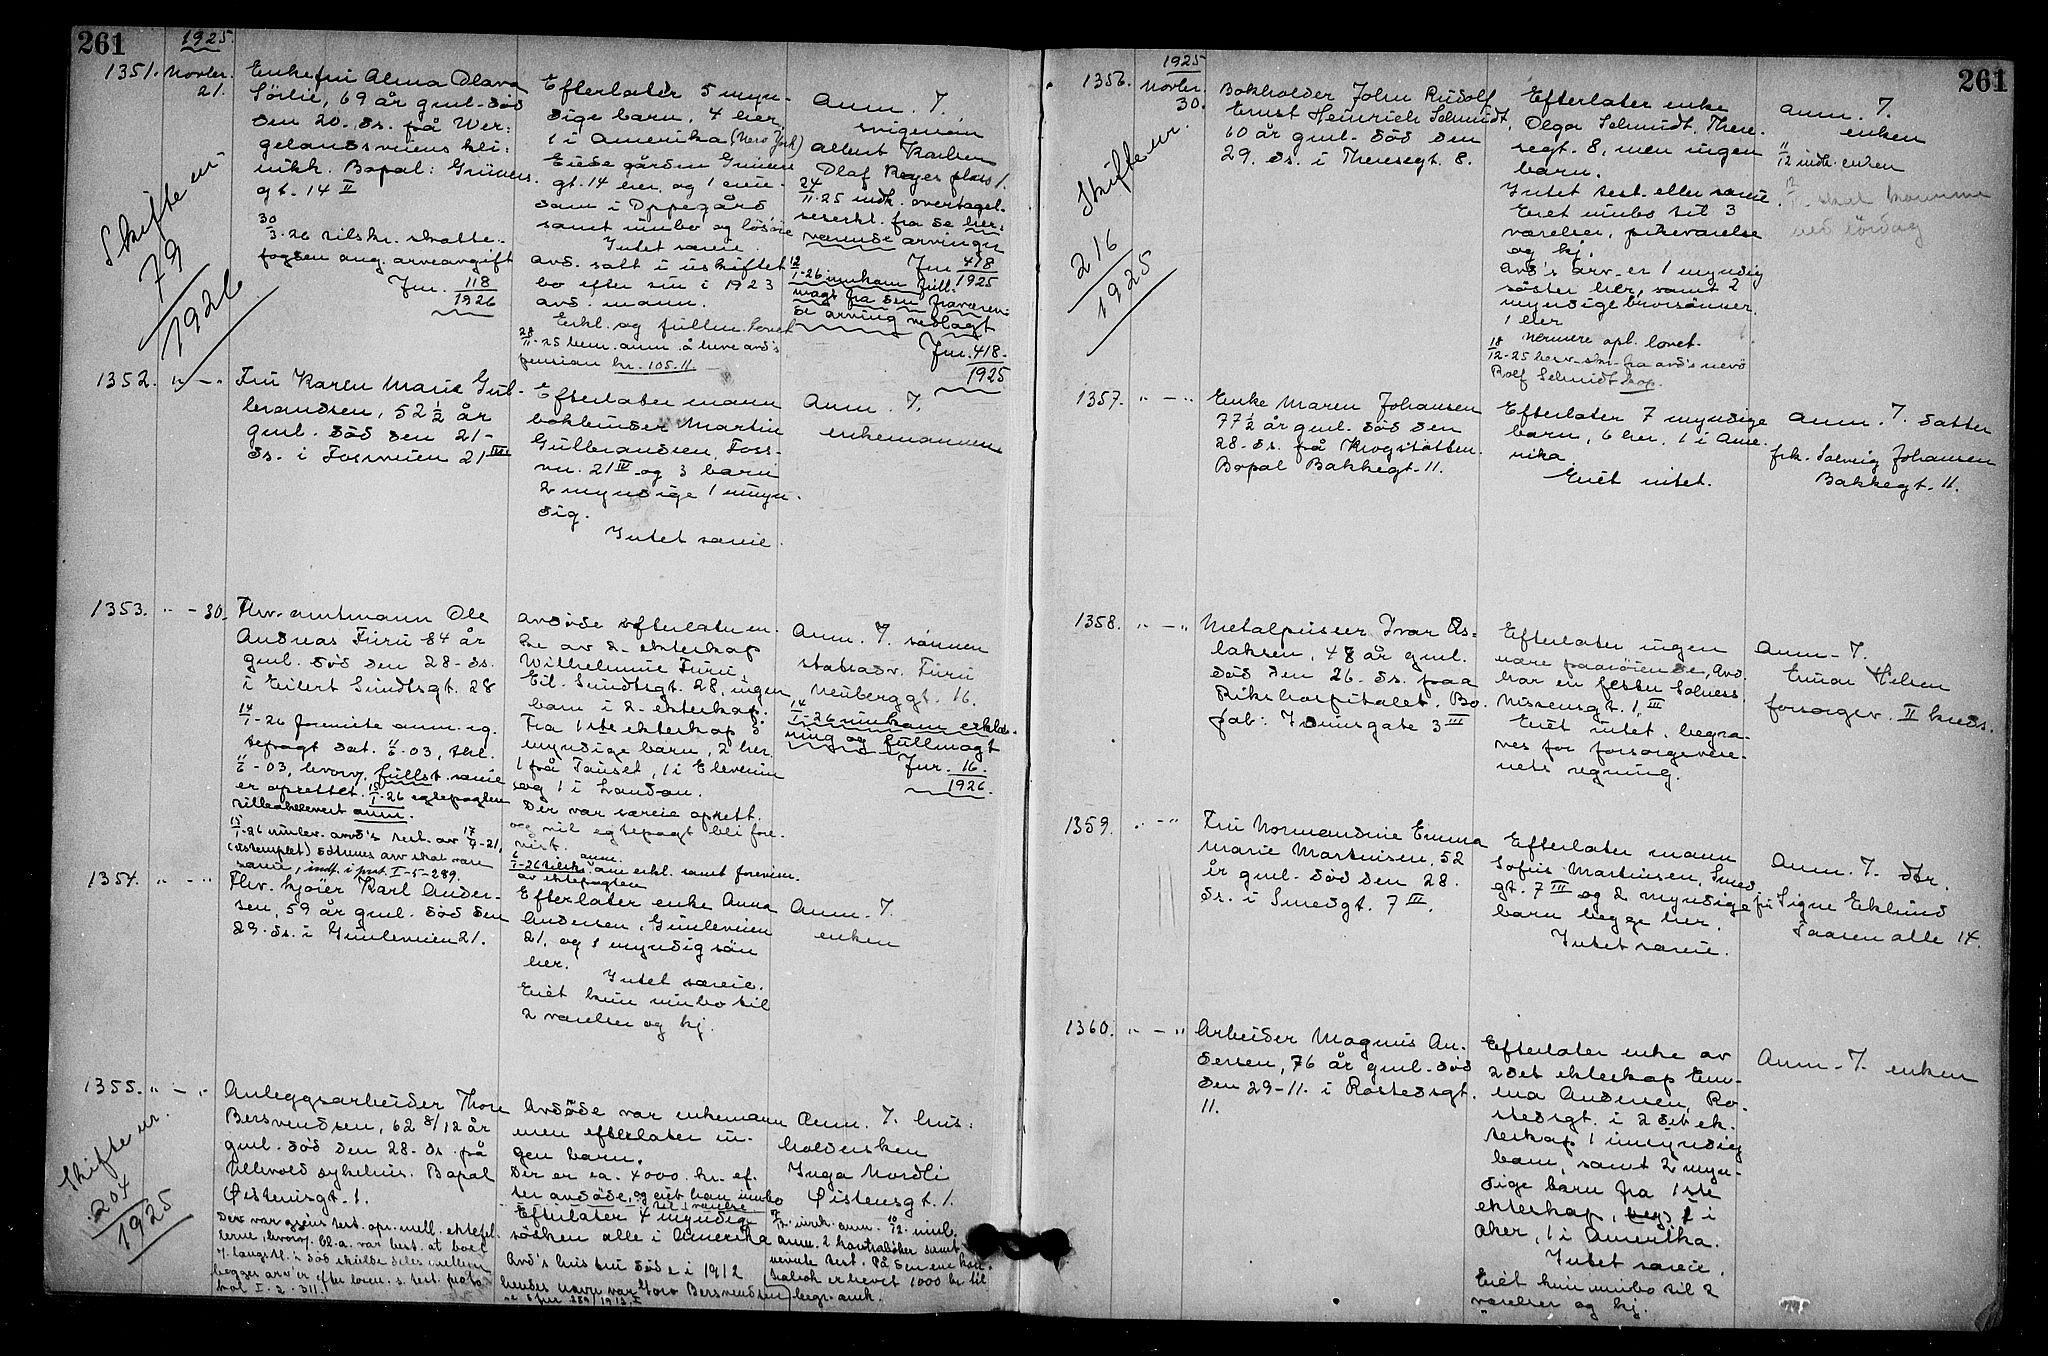 261
1925.
1351. Novbr. 21.
Enkefru Alma Olava
Sörlie, 69 år gml. död
den 20. ds. på Wer-
gelandsveiens kli-
nikk. Bopal: Grüners
gt. 14 II
30/3-26 tilskr. skatte-
fogden ang. arveavgift
Jnr. 118/1926
Skifte nr
79/1926
Efterlater 5 myn-
dige barn, 4 her,
1 i Amerika (New York)
Eiede gården Grüners
gt. 14 her, og 1 eien-
dom i Oppegård
samt innbo og lösöre
Intet særeie.
Avd. satt i uskiftet
bo efter sin i 1923
avd. mann.
Erkl. og fullm. lovet
28/11-25 bem. anm. å heve avd's
pension kr. 105.11
Anm. 7.
svigersön
Albert Karlsen
Olaf Ryes plass 1.
24/11-25 indk. overtagel-
seserkl. fra de her-
værende arvinger
Jnr. 418/1925
12/1-26 innkom full-
magt fra den fraværen-
de arving vedlagt
Jnr. 418/1925
1352. " - "
Fru Karen Marie Gul-
brandsen, 52 1/2 år
gml. död den 21-
ds. i Fossveien 21 III
Efterlater mann
bokbinder Martin
Gulbrandsen, Foss-
vn. 21 IV og 3 barn
2 myndige 1 umyn-
dig.
Intet særeie.
Anm. 7.
enkemannen
1353. " - 30.
Fhv. amtmann Ole
Andreas Furu 84 år
gml. död den 28. ds.
i Eilert Sundtsgt. 28
14/1-26 foreviste anm. eg-
tepagt dat. 11/6-03, tkl.
11/6-03, hvorv. fullst. særeie
er oprettet. 15/1-26 egtepagten
tilbakelevert anm.
15/1-26 innlev. avd's test. av 17/9-21,
(ustemplet) dötrenes arv skal være
særeie, indf. i prot. I-5-289.
Avdöde efterlater en-
ke av 2. ekteskap
Wilhelmine Furu,
Eil. Sundtsgt. 28, ingen
barn i 2. ekteskap.
Fra 1ste ekteskap 5
myndige barn, 2 her
1 på Tanset, 1 i Elverum
og 1 i London.
Der var særeie oprett.
og vil egtepagt bli fore-
vist.
6/1-26 tilskr. anm. om erkl. samt forevisn.
av ektepagten
Anm. 7. sönnen
statsadv. Furu
Neuberggt. 16.
14/1-26 innkom erklæ-
ring og fullmagt
Jnr. 16./1926.
1354. " - "
Fhv. kjörer Karl Ander-
sen, 59 år gml. död den
29. ds. i Gimleveien 21.
Efterlater enke Anna
Andersen, Gimleveien
21, og 1 myndig sön
her.
Intet særeie.
Eiet kun innbo til
2 værelser og kj.
Anm. 7.
enken
1355. " - "
Anleggsarbeider Thore
Bersvendsen, 62 8/12 år
gml. död den 28. ds. på
Ullevold sykehus. Bopal
Øistensgt. 1.
Der var gjens. test. opr. mell. ektefel-
lene, hvorv. bl. a. var best. at boet
v. lengstl.s död skulde deles mellem
begges arv'er efter loven. s. test. proto-
kol I-2-311.
Skifte nr.
204/1925
Avdöde var enkemann
men efterlater in-
gen barn.
Der er ca. 4000 kr. ef-
ter avdöde, og eiet han innbo
til 1 værelse
Efterlater 4 myndige
södsken alle i Amerika
Avd's hustru döde i 1912
hendes navn var Goro Bersvendsen
Anm. 7. hus-
holdersken
Inga Nordli
Øistensgt. 1.
10/12. innl.
anm. 2 kontraböker samt
nevnte test. På den ene kon-
trabok er hevet 1000 kr. til
begr. omk.
261
1925
1356. Novbr. 30.
Bokholder John Rudolf
Ernst Heinrich Schmidt,
60 år gml. död den
29. ds. i Theresegt. 8.
Skifte nr.
216/1925
Efterlater enke
Olga Schmidt, There-
segt. 8, men ingen
barn.
Intet test. eller særeie.
Eiet innbo til 3
værelser, pikeværelse
og kj.
Avd's arv. er 1 myndig
söster her, samt 2
myndige brorsönner
1 her
Nærmere opl. lovet.
18/12-25 henv. skr. fra avd's nevö
Rolf Schmidt
Anm. 7.
enken
11/12 indk. enken
skal komme
ned lördag
1357. " - "
Enke Maren Johansen
77 1/2 år gml. död den
28. ds. på Krogstötten.
Bopal Bakkegt. 11.
Efterlater 7 myndige
barn, 6 her, 1 i Ame-
rika.
Eiet intet.
Anm. 7. datter
frk. Solveig Johansen
Bakkegt. 11.
1358. " - "
Metalpusser Ivar As-
laksen, 48 år gml.
död den 26. ds. paa
Rikshospitalet. Bo-
pal: Idunsgate 3 III
Efterlater ingen
nære paarörende, Avd.
har en fester Solness
Nissensgt. 1, III
Eiet intet, begra-
ves for forsorgsvese-
nets regning.
Anm. 7.
Einar Nilsen
forsorgsv. II kreds.
1359. " - "
Fru Normandine Emma
Marie Martinsen, 52
år gml. död den 28.
ds. i Smedgt. 7 III.
Efterlater mann
Sofus Martinsen, Smed
gt. 7 III og 2 myndige
barn begge her.
Intet særeie.
Anm. 7. dtr.
fru Signe Eklund
Taasen alle 14.
1360. " - "
Arbeider Magnus An-
dersen, 76 år gml. död
den 29-11. i Rostedsgt.
11.
Efterlater enke av
2det ekteskap Em-
ma Andersen, Ro-
stedsgt. i 2det ek-
teskap 1 umyndig
barn, samt 2 myn-
dige barn fra 1ste
ekteskap, 1 i
Aker, 1 i Amerika.
Intet særeie.
Eiet kun innbo til 2
værelser og kj.
Anm. 7. enken